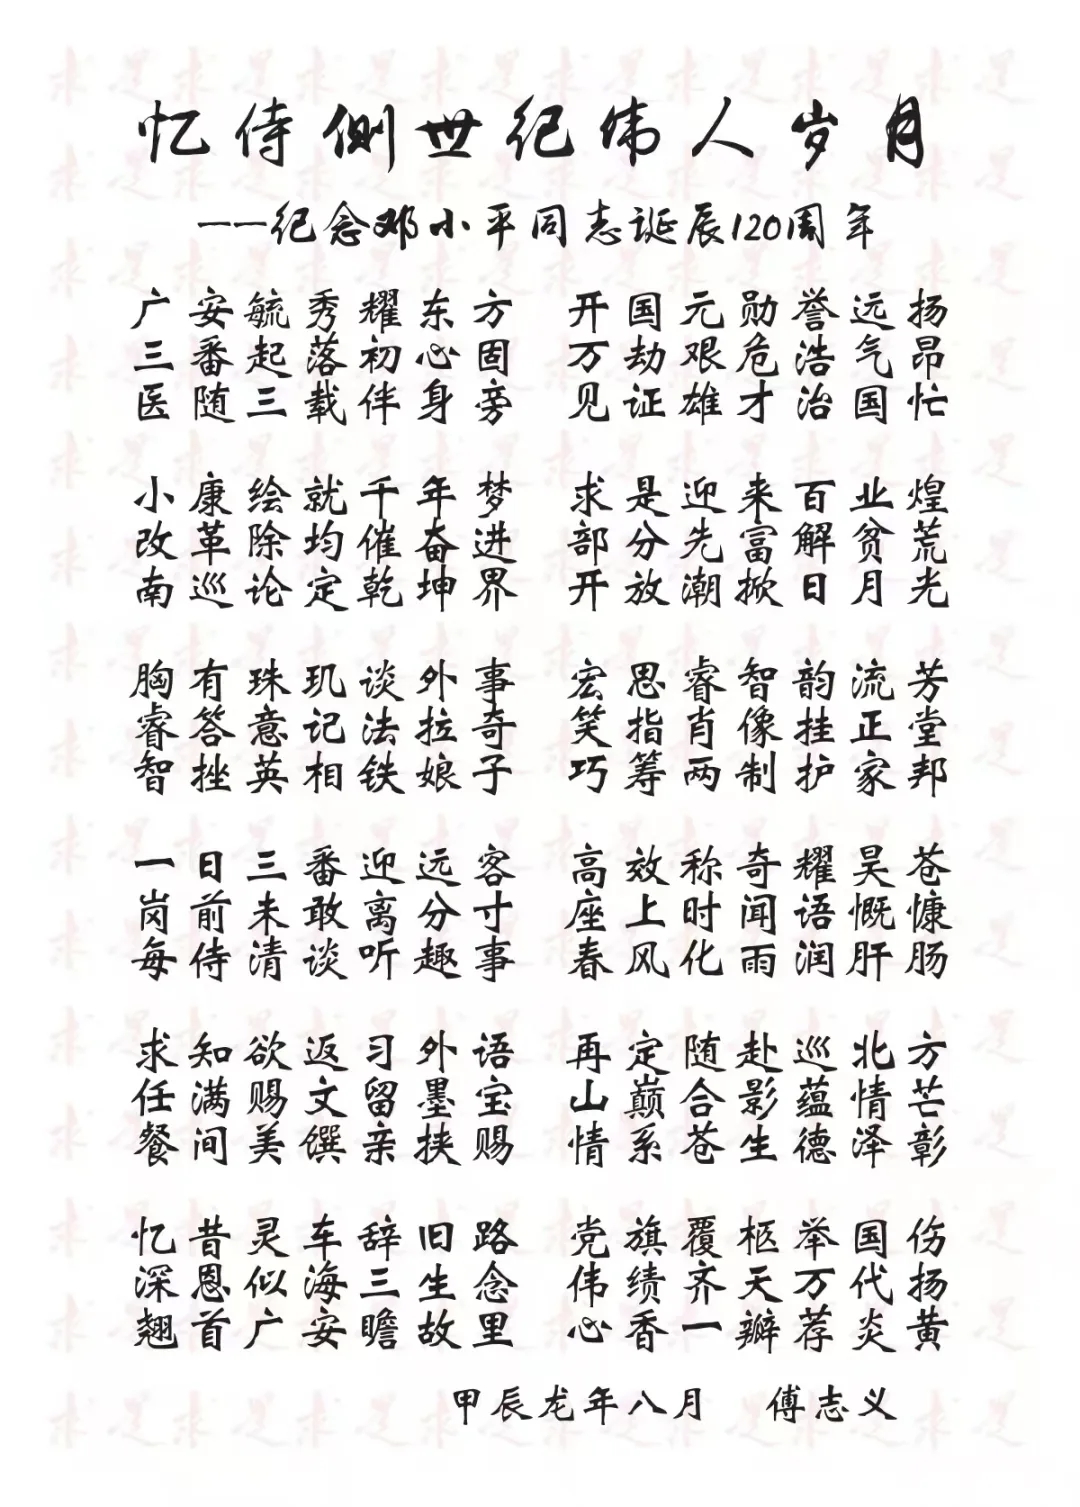 忆侍侧世纪伟人岁月
——纪念邓小平同志诞辰120周年
广安毓秀耀东方 开国元勋誉远扬
三番起落初心固 万劫艰危浩气昂
医随三载伴身旁 见证雄才治国忙
小康绘就千年梦 求是迎来百业煌
改革除均催奋进 部分先富解贫荒
南巡论定乾坤界 开放潮掀日月光
胸有珠玑谈外事 宏思睿智韵流芳
睿答意记法拉奇 笑指肖像挂正堂
智挫英相铁娘子 巧筹两制护家邦
一日三番迎远客 高效称奇耀昊苍
岗前未敢离分寸 座上时闻语慨慷
每侍清谈听趣事 春风化雨润肝肠
求知欲返习外语 再定随赴巡北方
任满赐文留墨宝 山巅合影蕴情芒
餐间美馔亲挟赐 情系苍生德泽彰
忆昔灵车辞旧路 党旗覆柩举国伤
深恩似海三生念 伟绩齐天万代扬
翘首广安瞻故里 心香一瓣荐炎黄
甲辰龙年八月 傅志义
求是